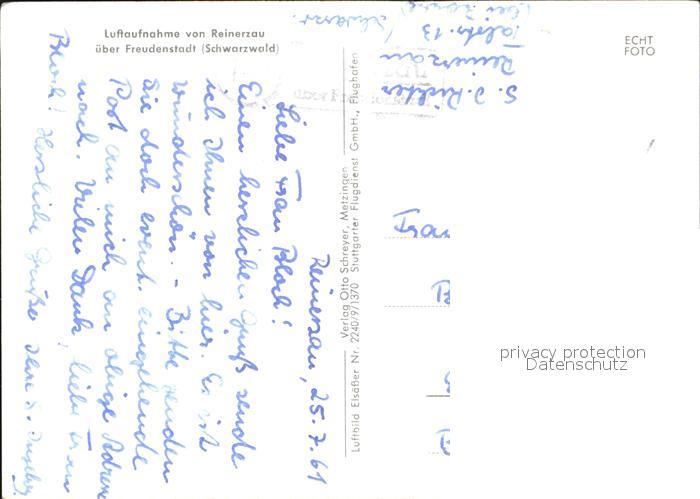 Luftaufnahme von Reinerzau
über Freudenstadt (Schwarzwald)
ECHT
FOTO
Reinerzau, 25.7.61
Liebe Frau Bloch!
Einen herzlichen Gruß sende
ich Ihnen von hier. Es ist
wunderschön. – Bitte senden
Sie doch event. eingehende
Post an mich an obige Adresse
nach. Vielen Dank, liebe Frau
Bloch! Herzliche Grüße Ihre
Verlag Otto Schreyer, Metzingen
Luftbild Elsäßer Nr. 2240/9/1370 Stuttgarter Flugdienst GmbH., Flughafen
Reinerzau
Talstr. 13
privacy protection
Datenschutz